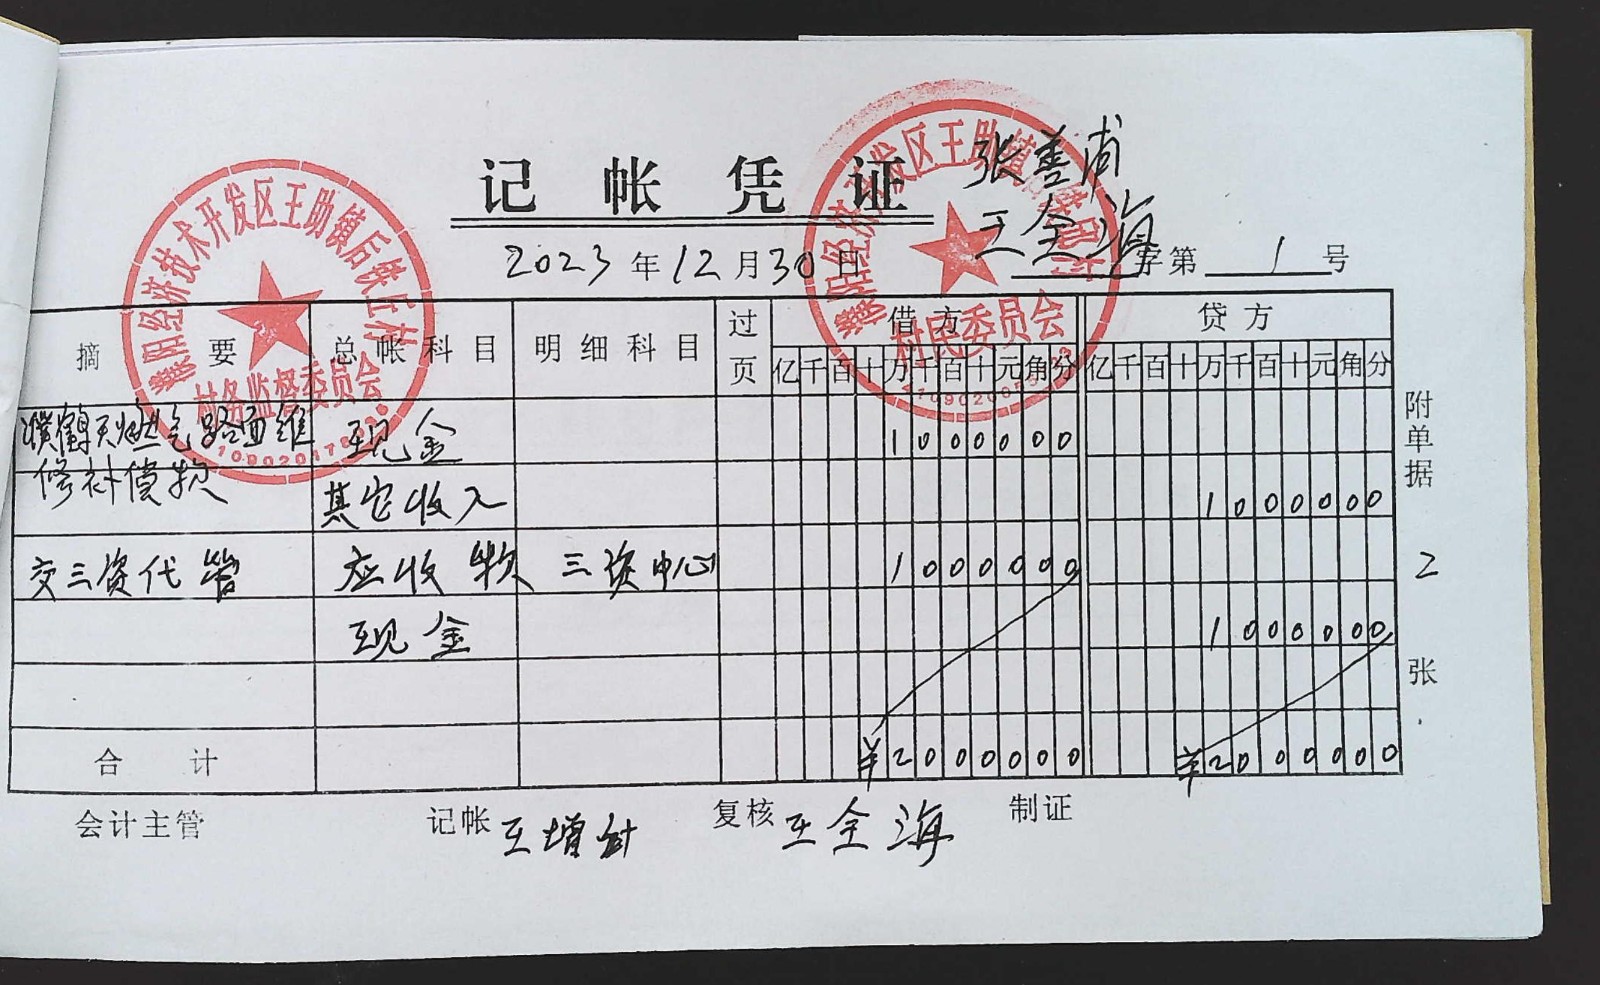 记帐凭证
张善甫
王全海
2023年12月30日
字第1号
濮阳经济技术开发区王助镇后铁丘村
村务监督委员会
濮阳经济技术开发区王助镇后铁丘村
村民委员会
摘要 总帐科目 明细科目 过页 借方 贷方
亿千百十万千百十元角分 亿千百十万千百十元角分
濮鹤天燃气路面维 现金 1000000
修补偿款 其它收入 1000000
交三资代管 应收款 三资中心 1000000
现金 1000000
合计 ¥2000000 ¥2000000
附单据2张
会计主管 记帐 王增 复核 王全海 制证